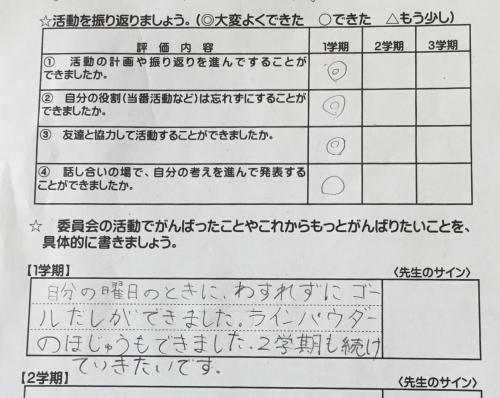 ☆活動を振り返りましょう。(◎大変よくできた ○できた △もう少し)
評価内容 1学期 2学期 3学期
① 活動の計画や振り返りを進んですることができましたか。 ◎
② 自分の役割(当番活動など)は忘れずにすることができましたか。 ◎
③ 友達と協力して活動することができましたか。 ◎
④ 話し合いの場で、自分の考えを進んで発表することができましたか。 ○
☆ 委員会の活動でがんばったことやこれからもっとがんばりたいことを、
具体的に書きましょう。
【1学期】 〈先生のサイン〉
自分の曜日のときに、わすれずにゴー
ルだしができました。ラインパウダー
のほじゅうもできました。2学期も続け
ていきたいです。
【2学期】 〈先生のサイン〉